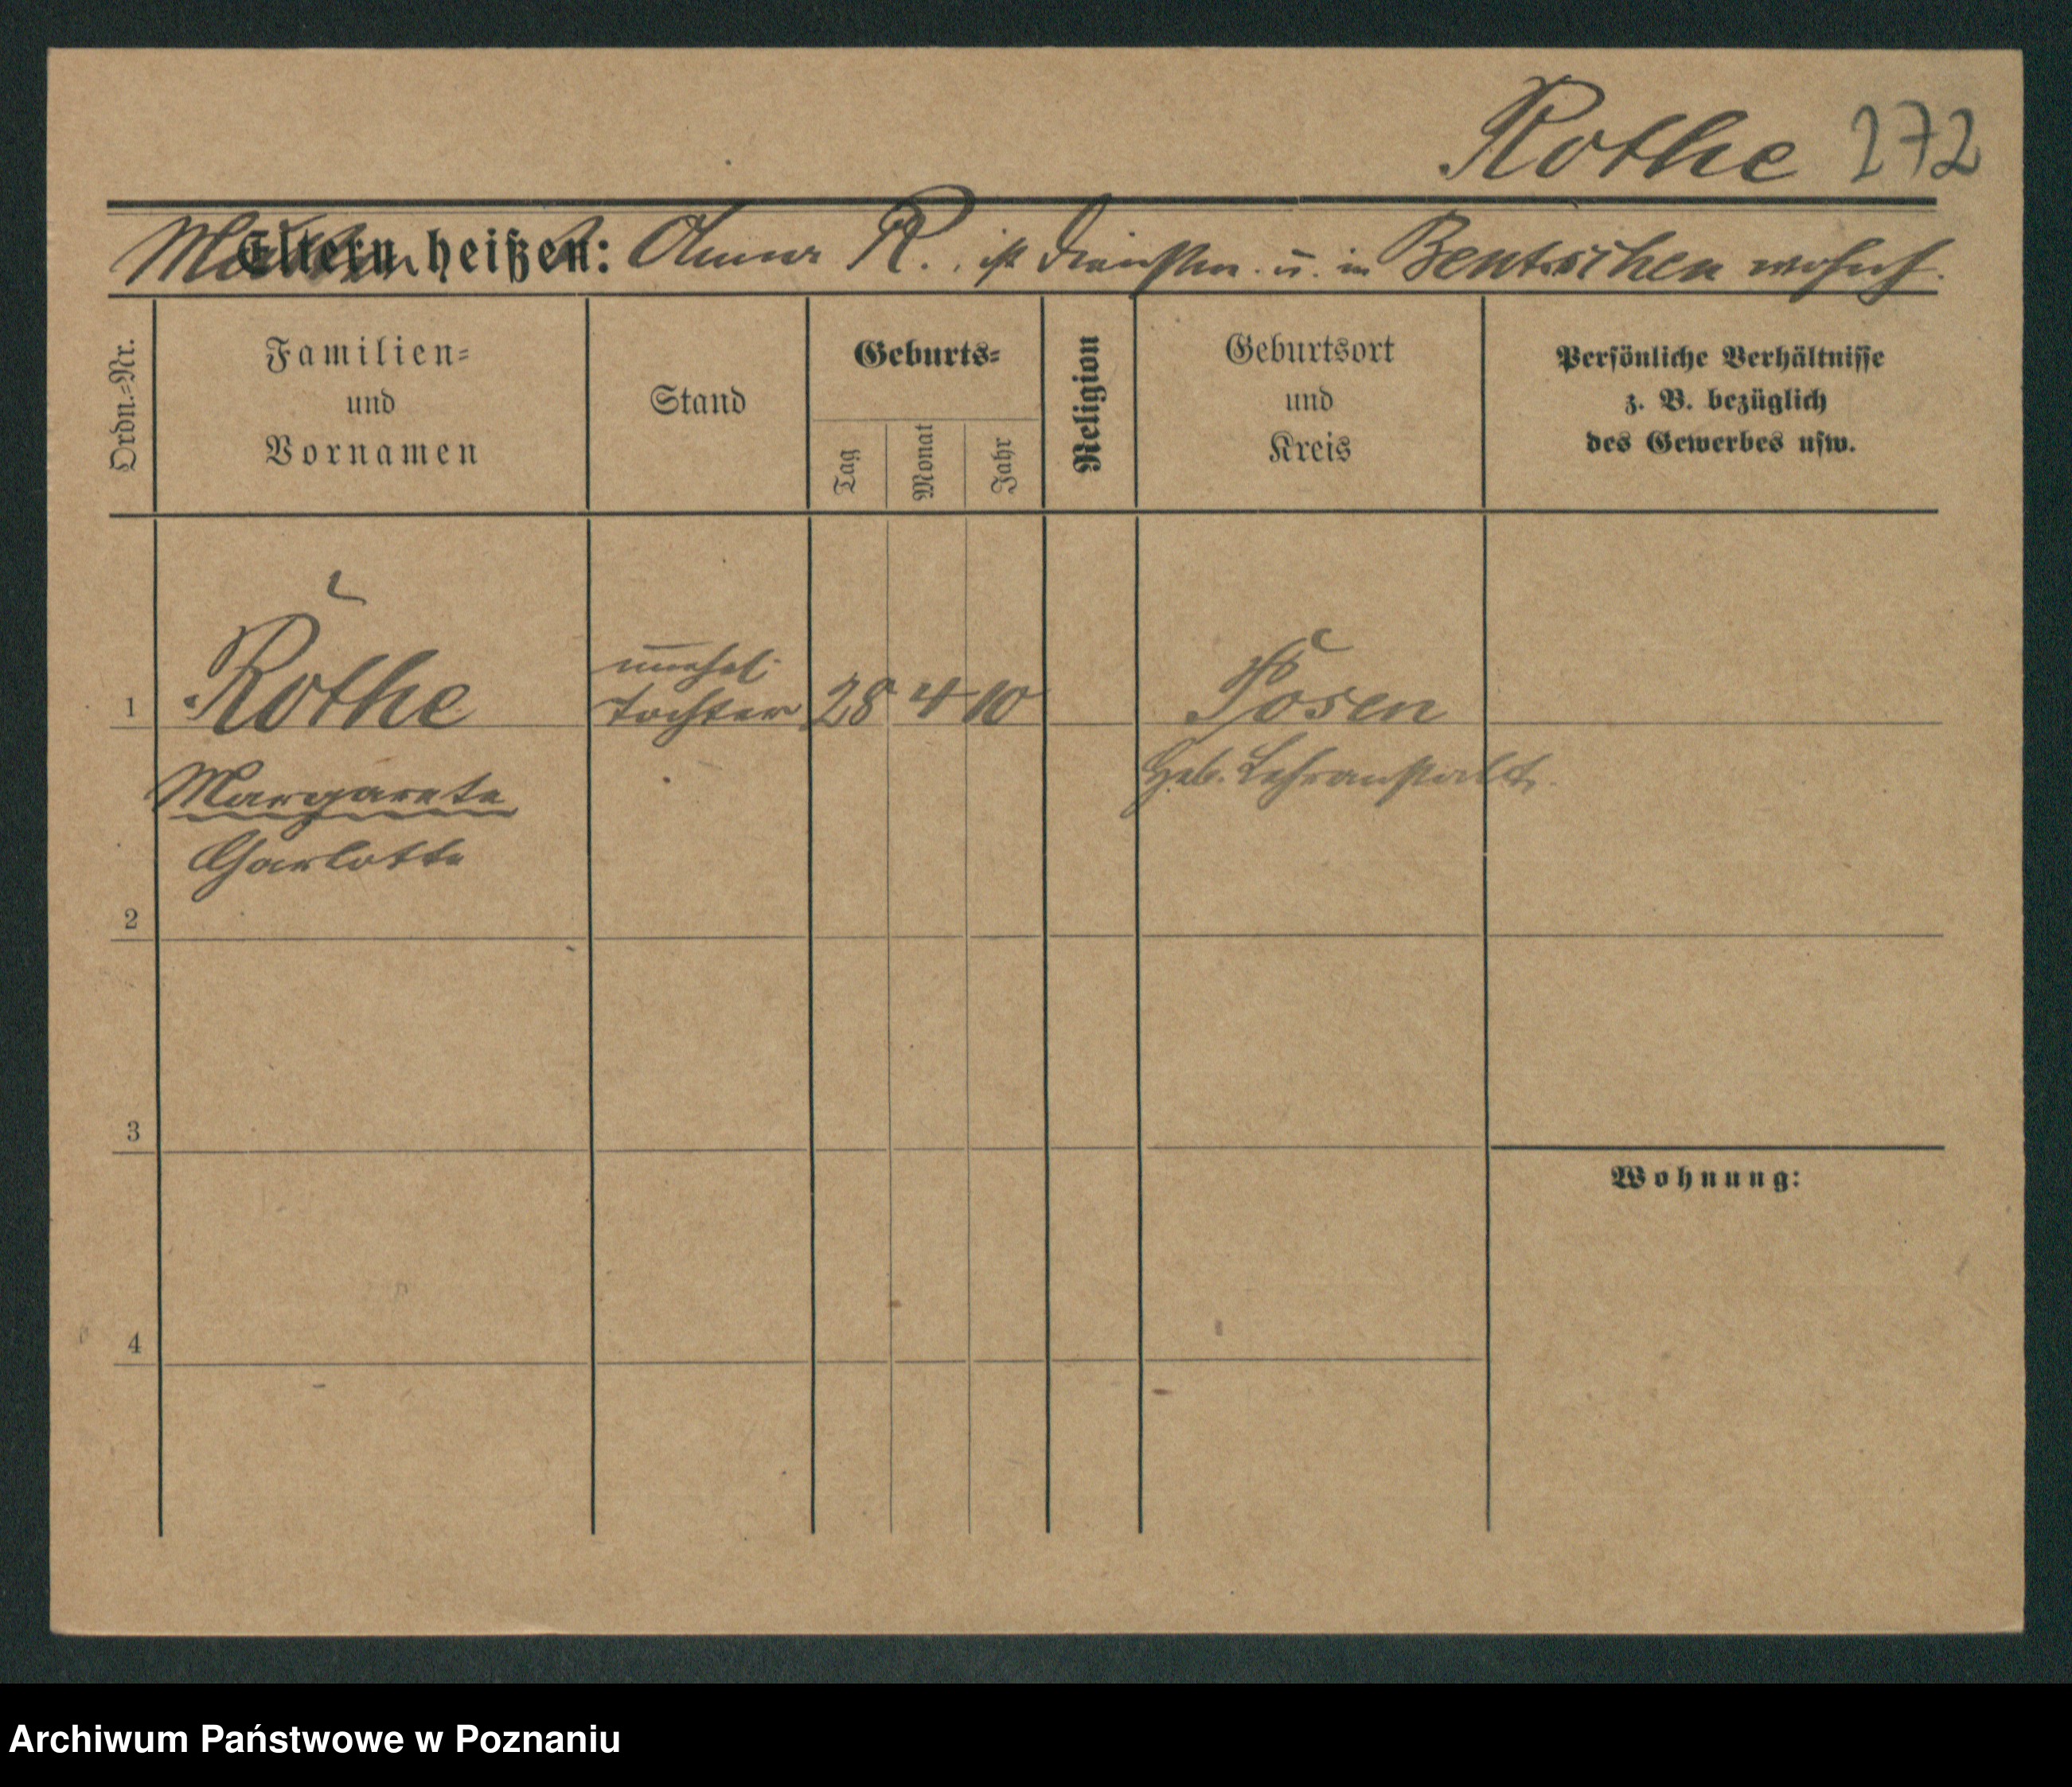 Rothe 272
Mutter Eltern heißen: Anna R., ist Dienstm. u. in Bentschen wohnh.
Ordn.-Nr.
Familien-
und
Vornamen
Stand
Geburts-
Tag
Monat
Jahr
Religion
Geburtsort
und
Kreis
Persönliche Verhältnisse
z. B. bezüglich
des Gewerbes usw.
1 Rothe
unehel.
Tochter
28 4 10
Posen
Heb. Lehranstalt.
Margarete
Charlotte
2
3
Wohnung:
4
Archiwum Państwowe w Poznaniu